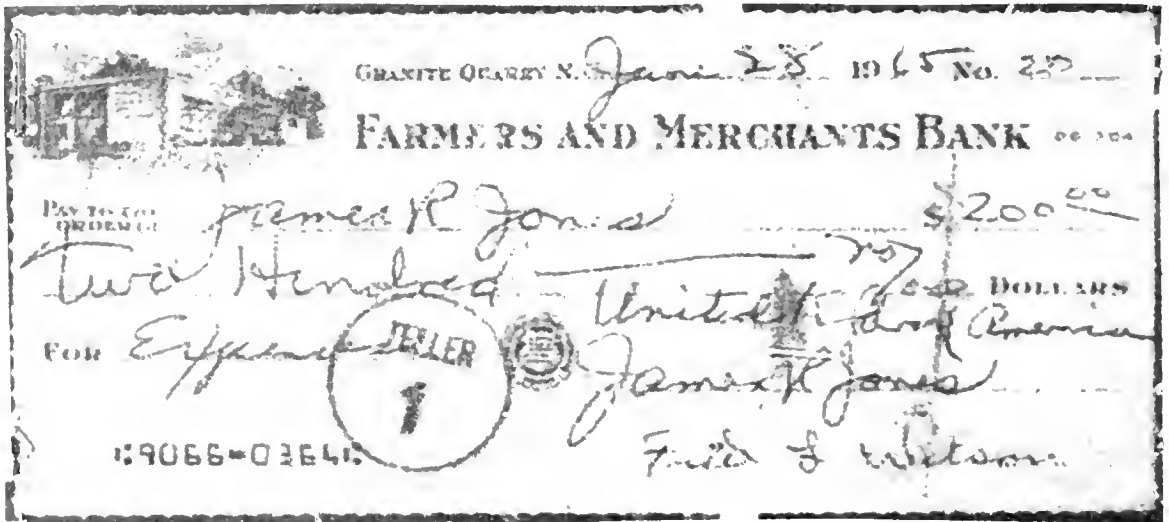 GRANITE QUARRY N.C. Jan 28 1965 No. 
FARMERS AND MERCHANTS BANK
PAY TO THE ORDER OF James R Jones $200 00
Two Hundred no/100 DOLLARS
United Klans of America
FOR Expenses
TELLER
1
James R Jones
Fred L Wilson
⑆9066⑉0364⑆